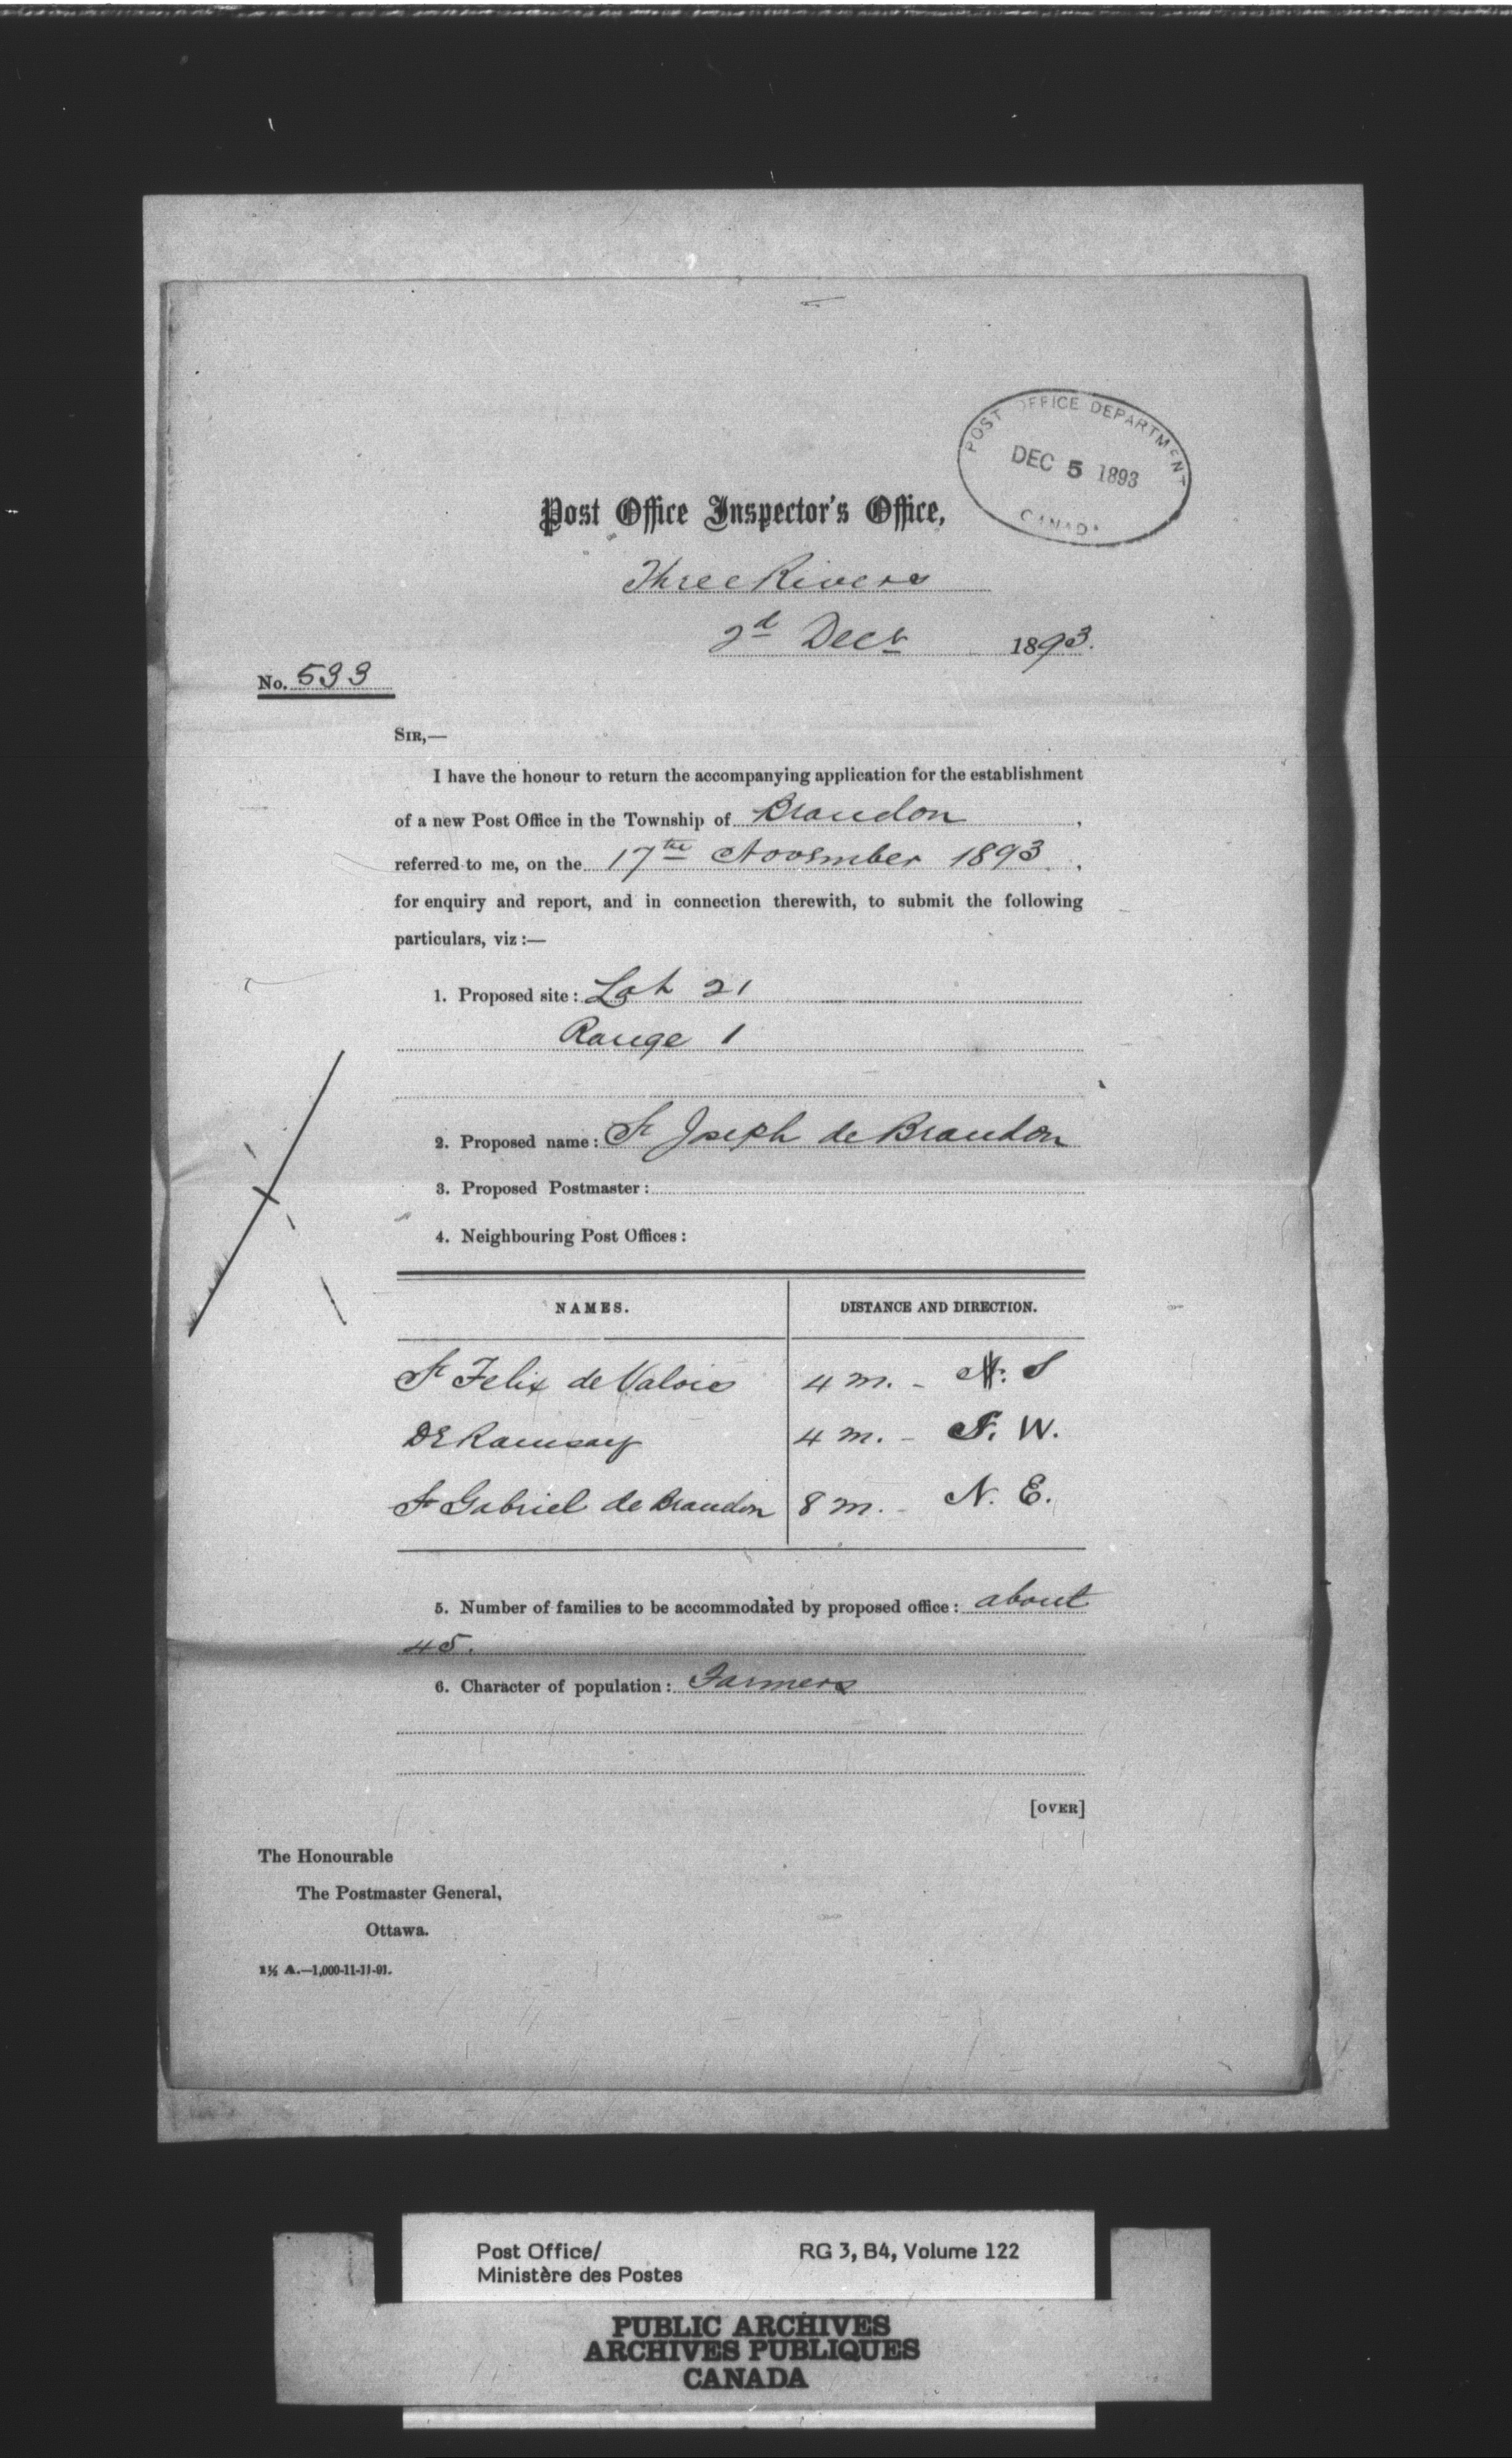 POST OFFICE DEPARTMENT
DEC 5 1893
CANADA
Post Office Inspector's Office,
Three Rivers
2d Decr 1893.
No. 533
SIR,—
I have the honour to return the accompanying application for the establishment
of a new Post Office in the Township of Brandon,
referred to me, on the 17th November 1893,
for enquiry and report, and in connection therewith, to submit the following
particulars, viz:—
1. Proposed site: Lot 21
Range 1
2. Proposed name: St Joseph de Brandon
3. Proposed Postmaster:
4. Neighbouring Post Offices:
NAMES. DISTANCE AND DIRECTION.
St Felix de Valois 4 m. - S
DE Ramsay 4 m. - S. W.
St Gabriel de Brandon 8 m. - N. E.
5. Number of families to be accommodated by proposed office: about
45.
6. Character of population: Farmers
[OVER]
The Honourable
The Postmaster General,
Ottawa.
1½ A.—1,000-11-11-91.
Post Office/ RG 3, B4, Volume 122
Ministère des Postes
PUBLIC ARCHIVES
ARCHIVES PUBLIQUES
CANADA